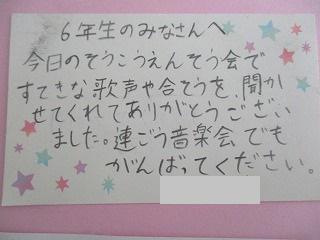 6年生のみなさんへ
今日のそうこうえんそう会で
すてきな歌声や合そうを、聞か
せてくれてありがとうござい
ました。連ごう音楽会でも
がんばってください。